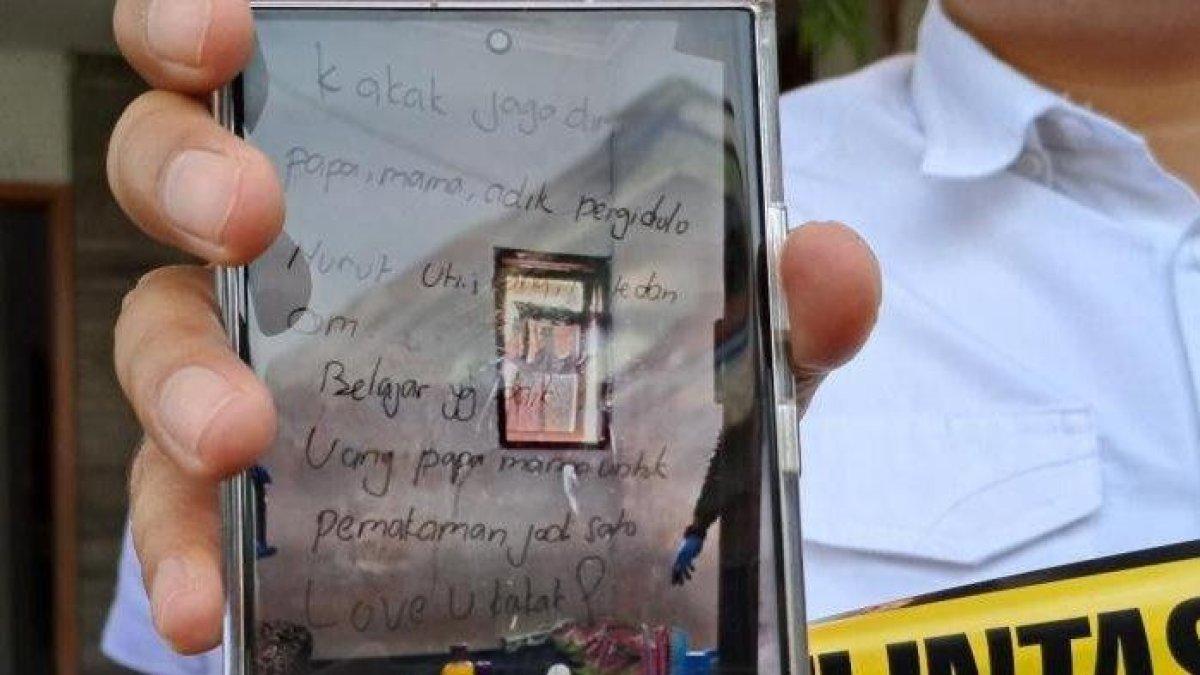 Kakak jaga diri
papa, mama, adik pergi dulo
Nurut Uti, dan
Om
Belajar yg baik
Uang papa mama untuk
pemakaman jadi satu
Love U kakak
LINTAS